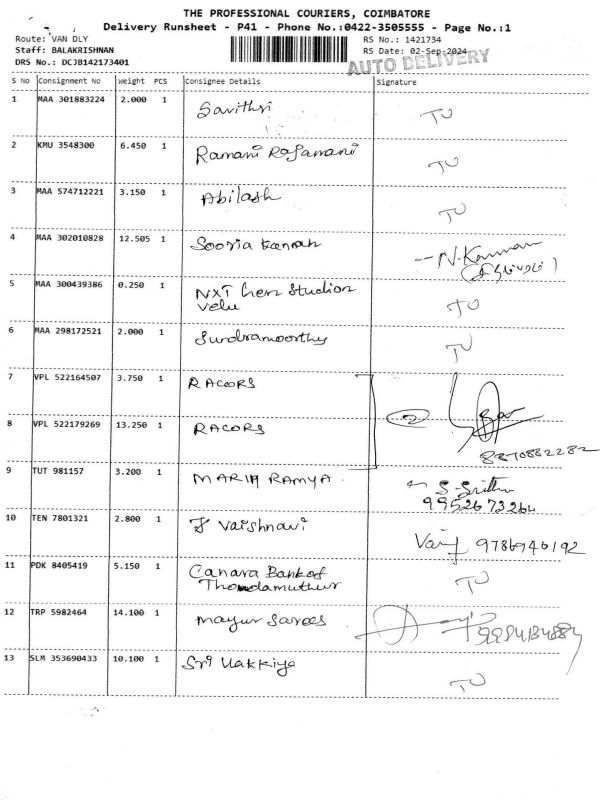 THE PROFESSIONAL COURIERS, COIMBATORE
Delivery Runsheet - P41 - Phone No.:0422-3505555 - Page No.:1
Route: VAN DLY RS No.: 1421734
Staff: BALAKRISHNAN RS Date: 02-Sep-2024
DRS No.: DCJB142173401 AUTO DELIVERY
S No Consignment No Weight PCS Consignee Details Signature
1 MAA 301883224 2.000 1 Savithri TU
2 KMU 3548300 6.450 1 Ramani Rajamani TU
3 MAA 574712221 3.150 1 Abilash TU
4 MAA 302010828 12.505 1 Sooria Kannah N. Kannan
5 MAA 300439386 0.250 1 NXT Studion TU
Velu
6 MAA 298172521 2.000 1 Sundramoorthy TU
7 VPL 522164507 3.750 1 RACORS
8 VPL 522179269 13.250 1 RACORS 2
8870882282
9 TUT 981157 3.200 1 MARIA RAMYA
9952673264
10 TEN 7801321 2.800 1 Vaishnavi 9786946192
11 PDK 8405419 5.150 1 Canara Bank of TU
Thondamuthur
12 TRP 5982464 14.100 1 Mayur Sarees
13 SLM 353690433 10.100 1 Sri Vakkiya TU